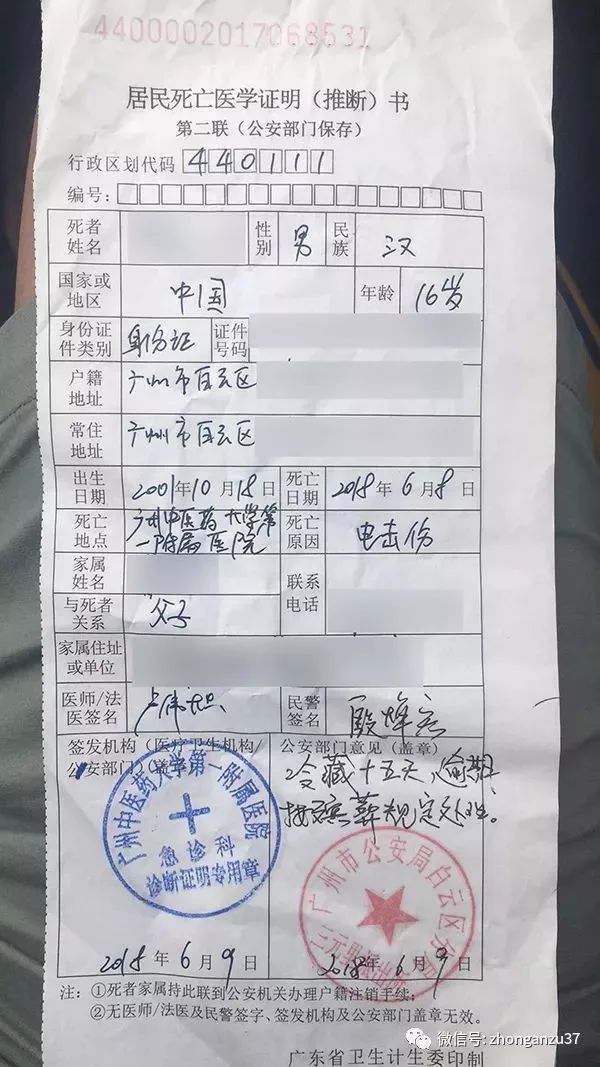 4400002017068531
居民死亡医学证明（推断）书
第二联（公安部门保存）
行政区划代码 440111
编号：
死者姓名 性别 男 民族 汉
国家或地区 中国 年龄 16岁
身份证件类别 身份证 证件号码
户籍地址 广州市白云区
常住地址 广州市白云区
出生日期 2001年10月18日 死亡日期 2018年6月8日
死亡地点 广州中医药大学第一附属医院 死亡原因 电击伤
家属姓名 联系电话
与死者关系 父子
家属住址或单位
医师/法医签名 民警签名
签发机构（医疗卫生机构/公安部门）（盖章） 公安部门意见（盖章）
冷藏十五天，逾期
按殡葬规定处理。
广州中医药大学第一附属医院
急诊科
诊断证明专用章
广州市公安局白云区分局
三元里派出所
2018年6月9日 2018年6月9日
注：①死者家属持此联到公安机关办理户籍注销手续；
②无医师/法医及民警签字、签发机构及公安部门盖章无效。
广东省卫生计生委印制
微信号: zhonganzu37